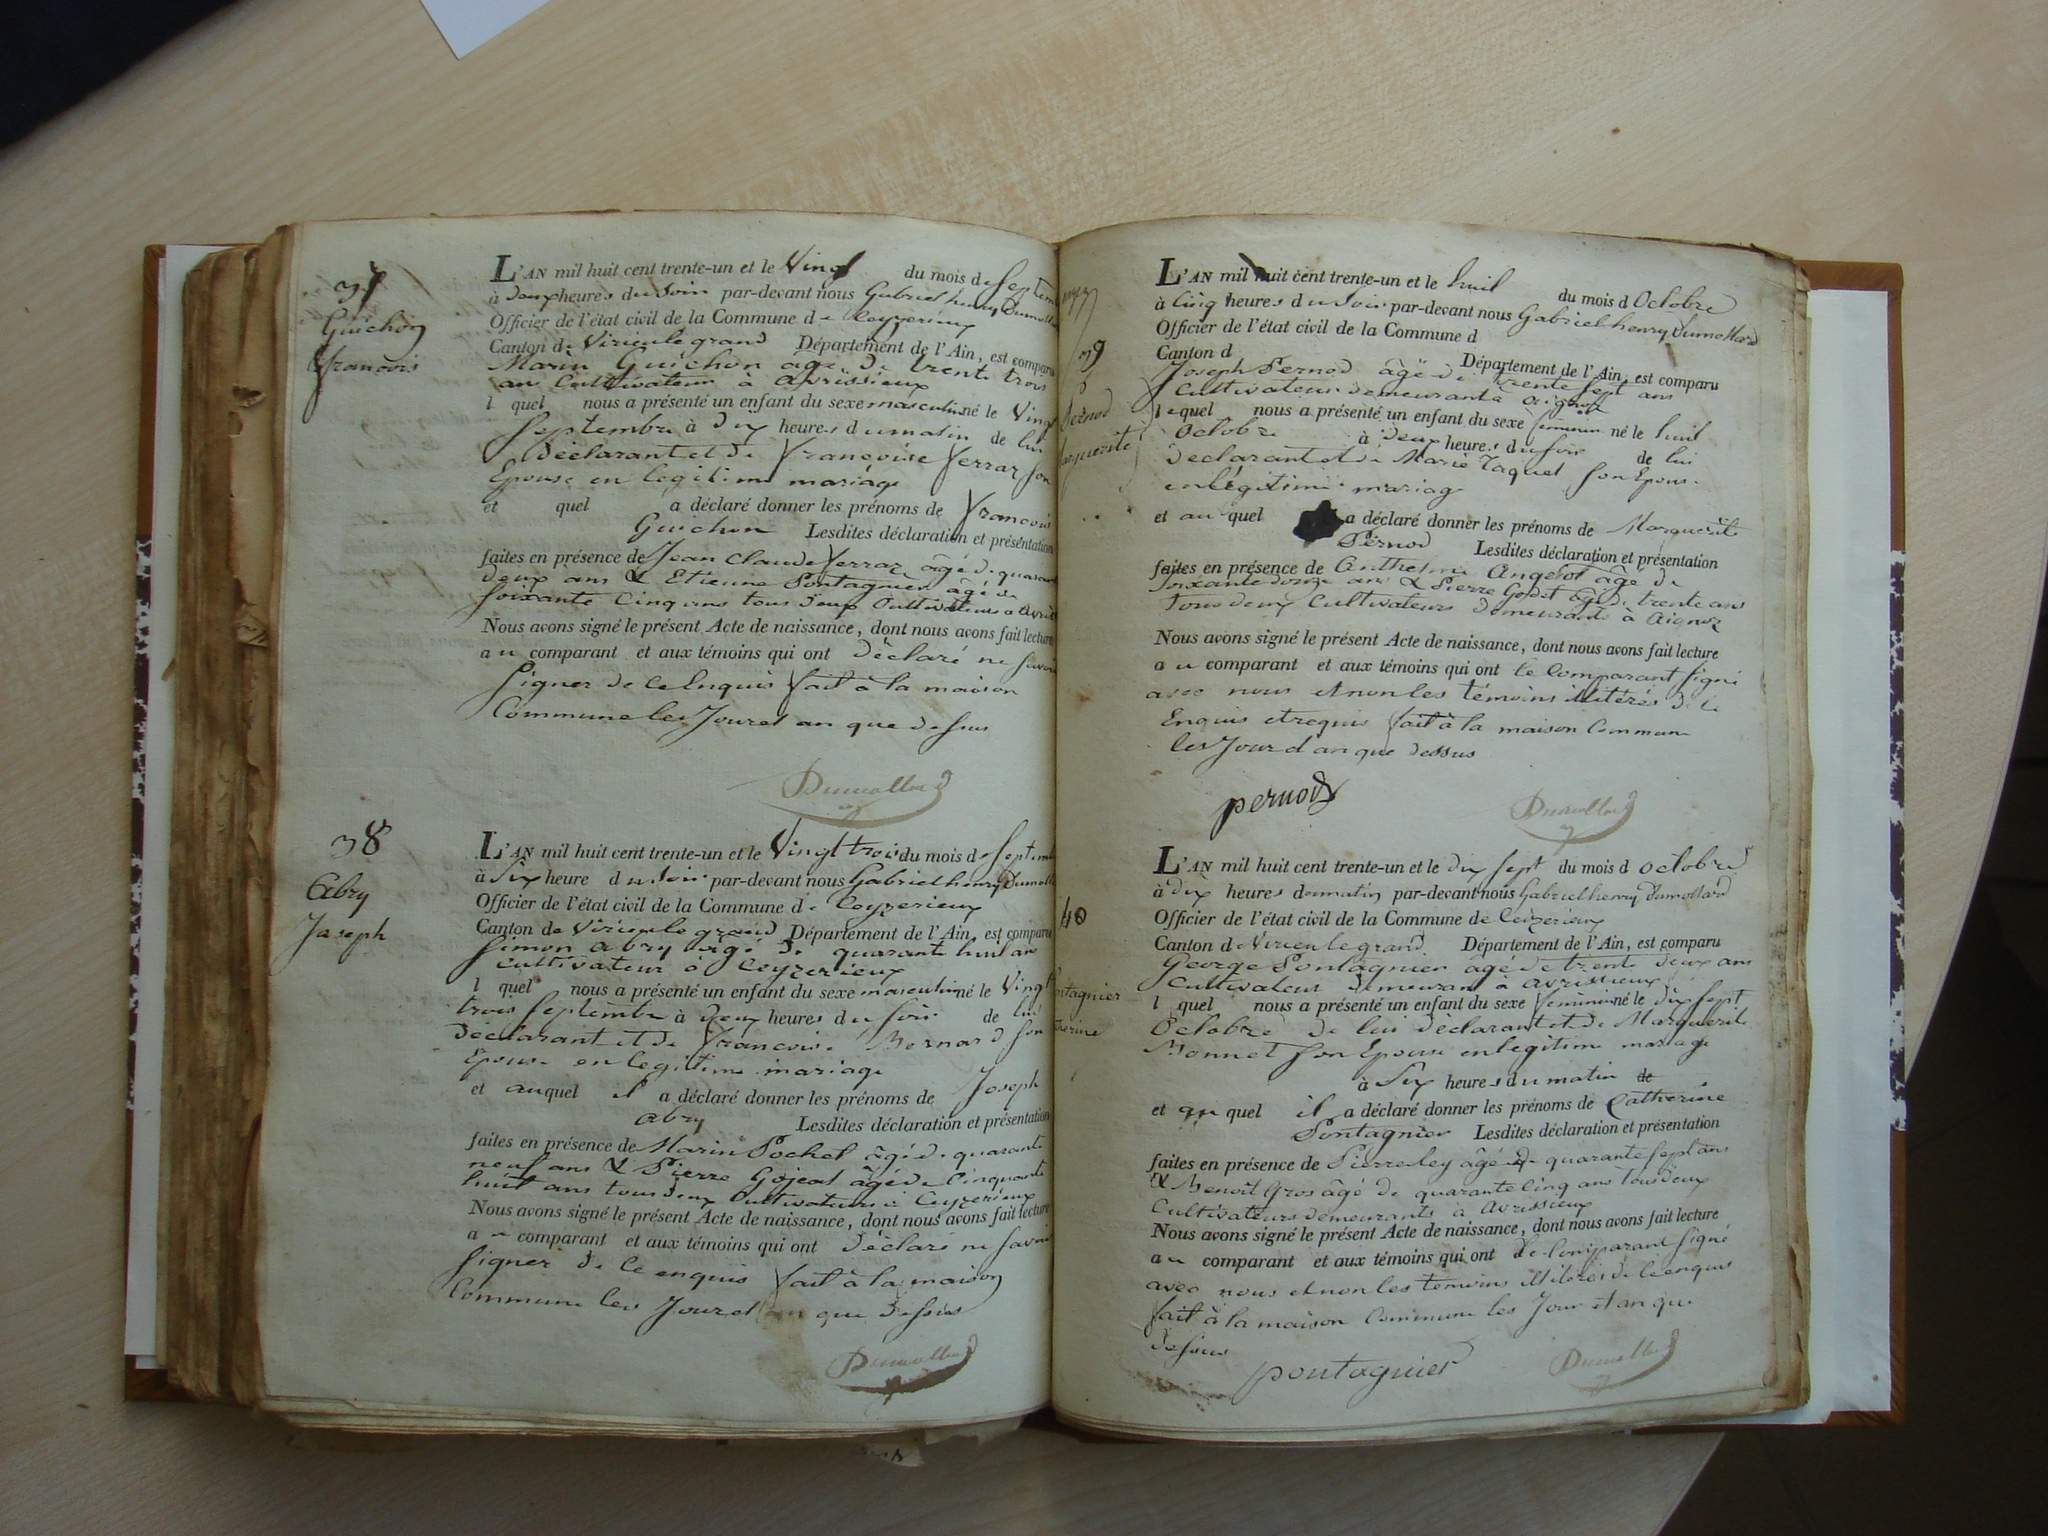 37
Guichon
francois
L'AN mil huit cent trente-un et le Vingt du mois de Septem
à deux heures du Soir par-devant nous Gabriel henry Dumolla
Officier de l'état civil de la Commune de Ceyzerieux
Canton de Virieu le grand Département de l'Ain, est comparu
Marin Guichon âgé de trente trois
ans Cultivateur à avrissieux
l quel nous a présenté un enfant du sexe masculin né le Vingt
Septembre à dix heures du matin de lui
Déclarant et de françoise ferraz Son
Epouse en légitime mariage
et quel a déclaré donner les prénoms de francois
Guichon Lesdites déclaration et présentation
faites en présence de Jean Claude ferraz âgé de quarante
deux ans & Etienne Pontagnier âgé de
Soixante Cinq ans tous deux Cultivateurs à avriss
Nous avons signé le présent Acte de naissance, dont nous avons fait lecture
au comparant et aux témoins qui ont Déclaré ne Savoir
Signer de Ce Enquis fait à la maison
Commune les Jour et an que dessus
Dumollard
38
Abry
Joseph
L'AN mil huit cent trente-un et le Vingt trois du mois de Septemb
à Six heure du Soir par-devant nous Gabriel henry Dumolla
Officier de l'état civil de la Commune de Ceyzerieux
Canton de Virieu le grand Département de l'Ain, est comparu
Simon abry âgé de quarante huit ans
cultivateur à Ceyzerieux
l quel nous a présenté un enfant du sexe masculin né le Vingt
trois Septembre à deux heures du Soir de lui
Déclarant et de francoise Bernard Son
Epouse en legitime mariage
et auquel il a déclaré donner les prénoms de Joseph
abry Lesdites déclaration et présentation
faites en présence de Marin Pochet âgé de quarante
neuf ans & Pierre Gojeat âgé de Cinquante
huit ans tous deux Cultivateurs à Ceyzerieux
Nous avons signé le présent Acte de naissance, dont nous avons fait lecture
au comparant et aux témoins qui ont Déclaré ne Savoir
Signer de Ce enquis fait à la maison
Commune les Jour et an que Dessus
Dumollard
39
Pernod
Marguerite
L'AN mil huit cent trente-un et le huit du mois d Octobre
à Cinq heures du Soir par-devant nous Gabriel henry Dumollard
Officier de l'état civil de la Commune d
Canton d Département de l'Ain, est comparu
Joseph Pernod âgé de trente Sept ans
Cultivateur demeurant à aignoz
lequel nous a présenté un enfant du sexe feminin né le huit
Octobre à deux heures du Soir de lui
Declarant et de Marie Taquet Son Epouse
en légitime mariag
et au quel a déclaré donner les prénoms de Marguerite
Pernod Lesdites déclaration et présentation
faites en présence de Anthelme Angelot âgé de
Soixante douze ans & Pierre Godet âgé de trente ans
Tous deux Cultivateurs demeurants à Aignoz
Nous avons signé le présent Acte de naissance, dont nous avons fait lecture
au comparant et aux témoins qui ont le Comparant Signé
avec nous et non les témoins illitérés de Ce
Enquis et requis fait à la maison Commune
les Jour et an que dessus
pernod
Dumollard
40
Pontagnier
Catherine
L'AN mil huit cent trente-un et le dix Sept du mois d octobre
à dix heures du matin par-devant nous Gabriel henry Dumollard
Officier de l'état civil de la Commune de Ceizerieux
Canton de Virieu le grand Département de l'Ain, est comparu
George Pontagnier âgé de trente deux ans
Cultivateur Demeurant à avrissieux
l quel nous a présenté un enfant du sexe feminin né le dix Sept
Octobre de lui déclarant et de Marguerite
Monnet Son Epouse en legitime mariage
à Six heures du matin de
et au quel il a déclaré donner les prénoms de Catherine
Pontagnier Lesdites déclaration et présentation
faites en présence de Pierre ley âgé de quarante Sept ans
& Benoit Gros âgé de quarante Cinq ans Tous deux
Cultivateurs demeurants à Avrissieux
Nous avons signé le présent Acte de naissance, dont nous avons fait lecture
au comparant et aux témoins qui ont le Comparant Signé
avec nous et non les temoins illiterés de Ce enquis
fait à la maison Commune les Jour et an que
dessus
pontagnier
Dumollard